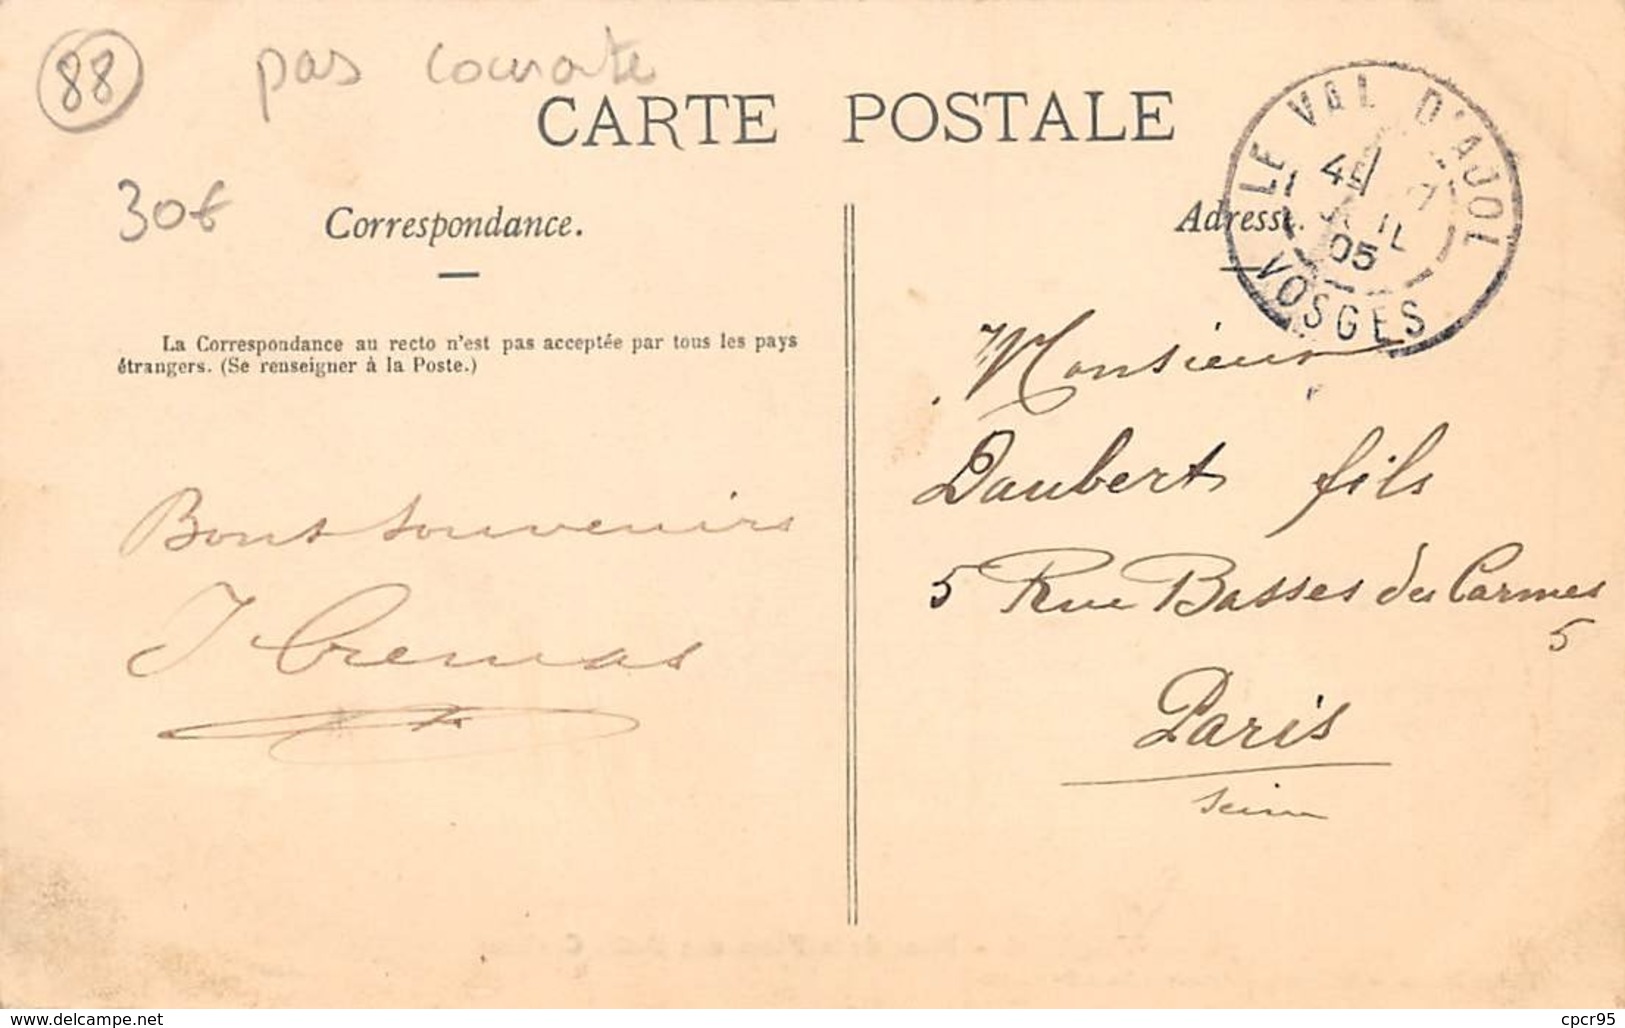 88
pas courante
CARTE POSTALE
30€
Correspondance.
Adresse.
LE VAL D'AJOL
4E 7
JUIL
05
VOSGES
La Correspondance au recto n'est pas acceptée par tous les pays
étrangers. (Se renseigner à la Poste.)
Bons souvenirs
J Cremas
Monsieur
Daubert fils
5 Rue Basses des Carmes
5
Paris
Seine
www.delcampe.net
cpcr95